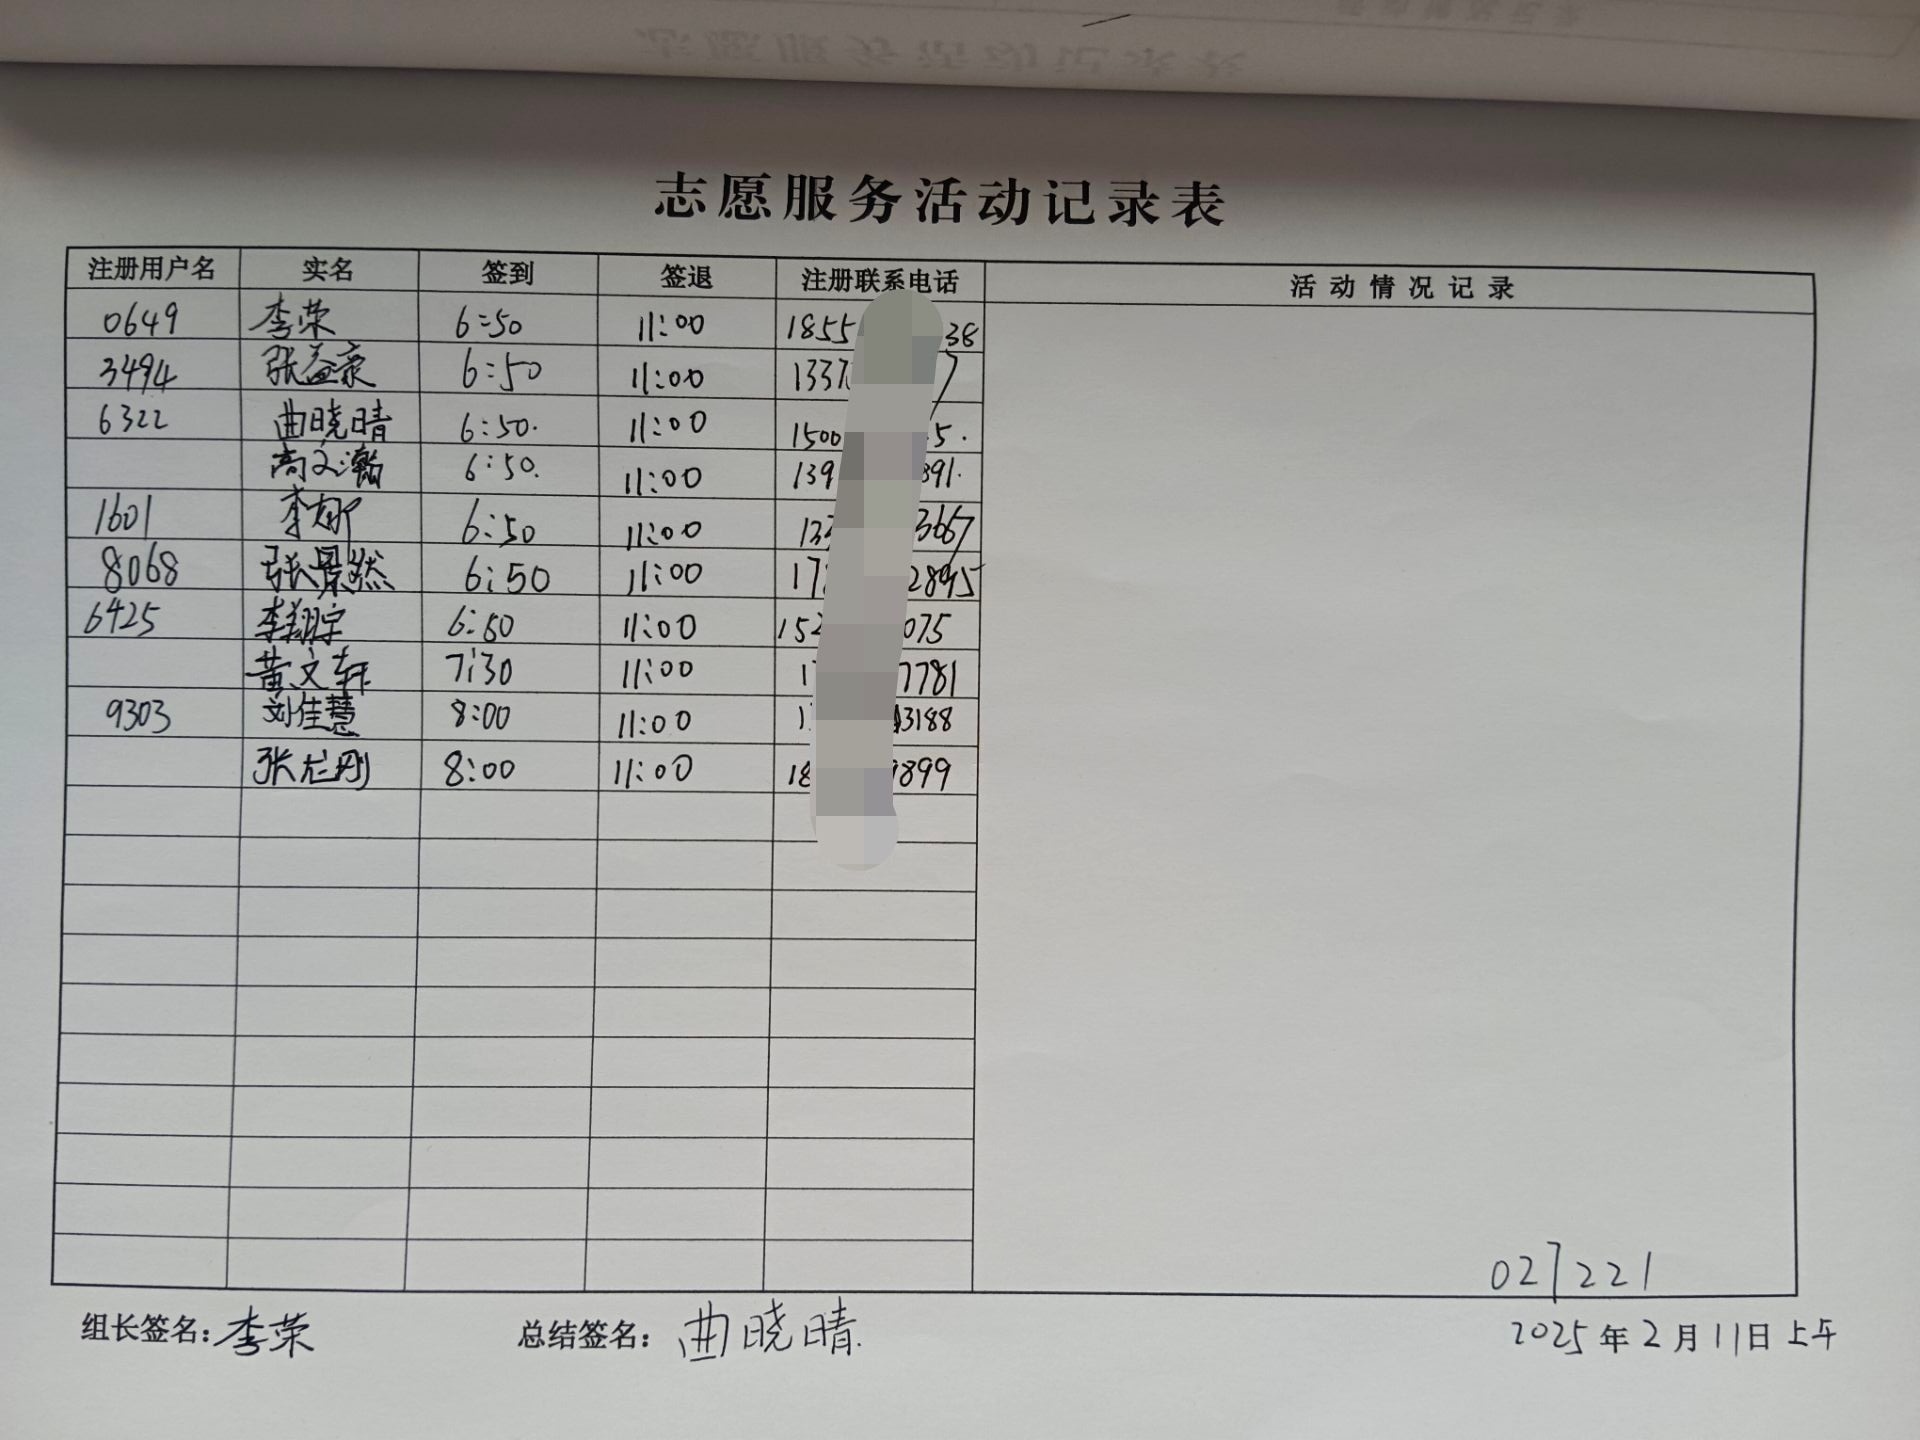 志愿服务活动记录表
注册用户名 实名 签到 签退 注册联系电话 活动情况记录
0649 李荣 6:50 11:00 1855 38
3494 张益豪 6:50 11:00 1337 7
6322 曲晓晴 6:50. 11:00 1500 5.
高文瀚 6:50. 11:00 139 891.
1601 李郁 6:50 11:00 13 3667
8068 张景然 6:50 11:00 17 2895
6425 李翔宇 6:50 11:00 152 075
黄文轩 7:30 11:00 1 7781
9303 刘佳慧 8:00 11:00 1 3188
张龙刚 8:00 11:00 18 9899
027221
组长签名:李荣 总结签名:曲晓晴. 2025年2月11日上午